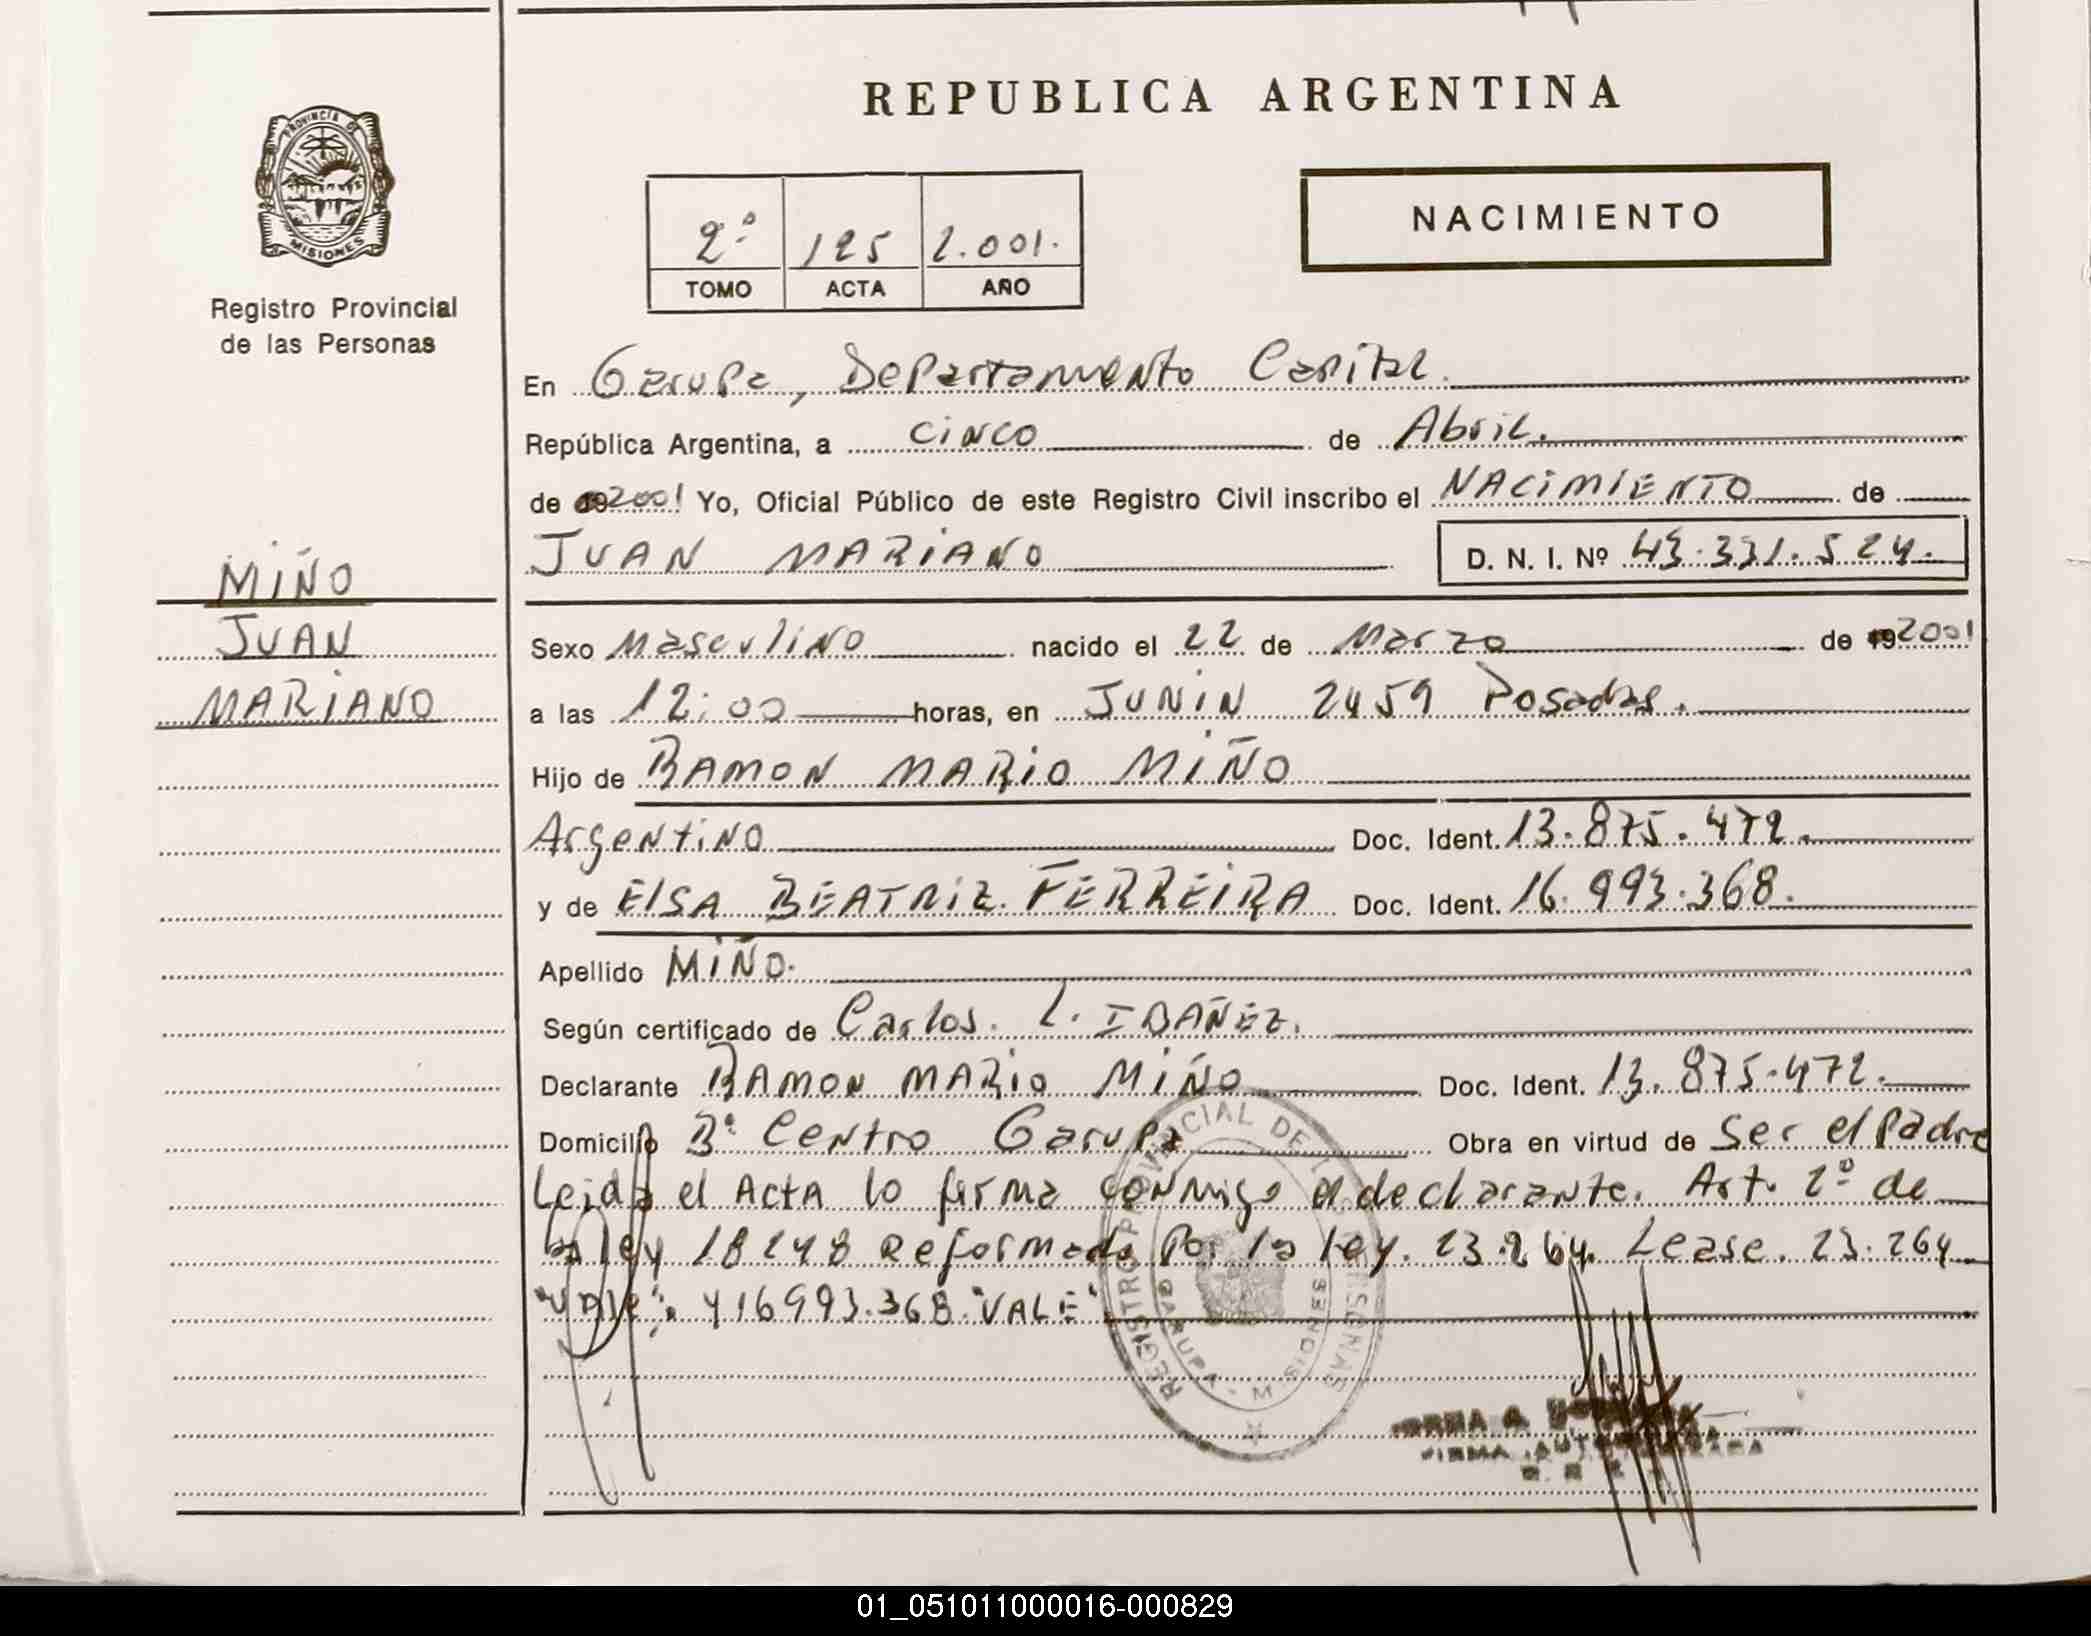 REPUBLICA ARGENTINA
PROVINCIA DE
MISIONES
Registro Provincial
de las Personas
2º 125 2.001.
TOMO ACTA AÑO
NACIMIENTO
En Garupa, Departamento Capital.
República Argentina, a cinco de Abril.
de 2001 Yo, Oficial Público de este Registro Civil inscribo el NACIMIENTO de
JUAN MARIANO D. N. I. Nº 43.331.524.
MIÑO
JUAN
MARIANO
Sexo Masculino nacido el 22 de Marzo de 192001
a las 12:00 horas, en JUNIN 2459 Posadas.
Hijo de RAMON MARIO MIÑO
Argentino Doc. Ident. 13.875.472.
y de ElSA BEATRIZ FERREIRA Doc. Ident. 16.993.368.
Apellido MIÑO.
Según certificado de Carlos. L. IBAÑEZ.
Declarante RAMON MARIO MIÑO Doc. Ident. 13.875.472.
Domicilio Bº Centro Garupa Obra en virtud de Ser el Padre
Leida el Acta lo firma conmigo el declarante. Art. 2º de
la ley 18248 Reformada Por la Ley. 23.264. Lease. 23.264
"Vale". y 16993.368 "VALE"
REGISTRO PROVINCIAL DE LAS PERSONAS
GARUPA - MISIONES
FIRMA AUTORIZADA
01_051011000016-000829